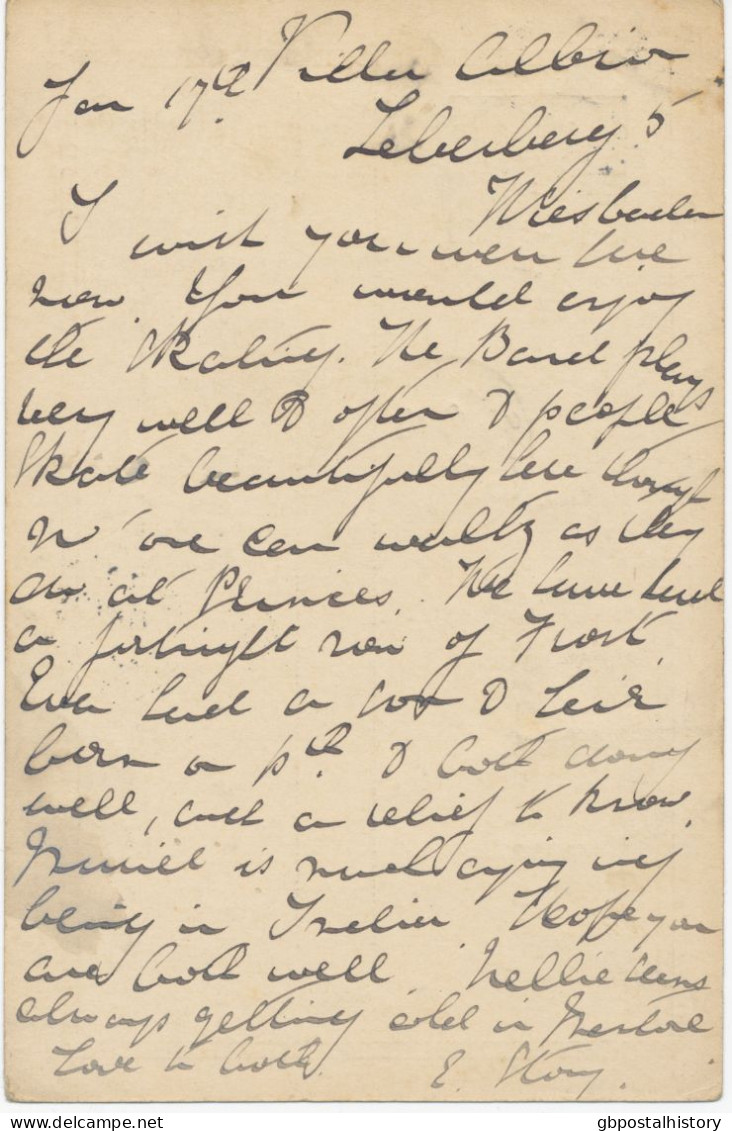 Jan 17th Villa Albion
Leberberg 5
Wiesbaden
I wish you were here
now. You would enjoy
the Skating. The Band plays
very well & often & people
Skate beautifully here though
no one can waltz as they
do at Princes. We have had
a fortnight now of Frost.
Eva had a son & heir
born on & both doing
well, such a relief to know.
Muriel is much enjoying
being in India Hope you
are both well. Nellie
always getting cold in
Love to both. E. Story.
gbpostalhistory